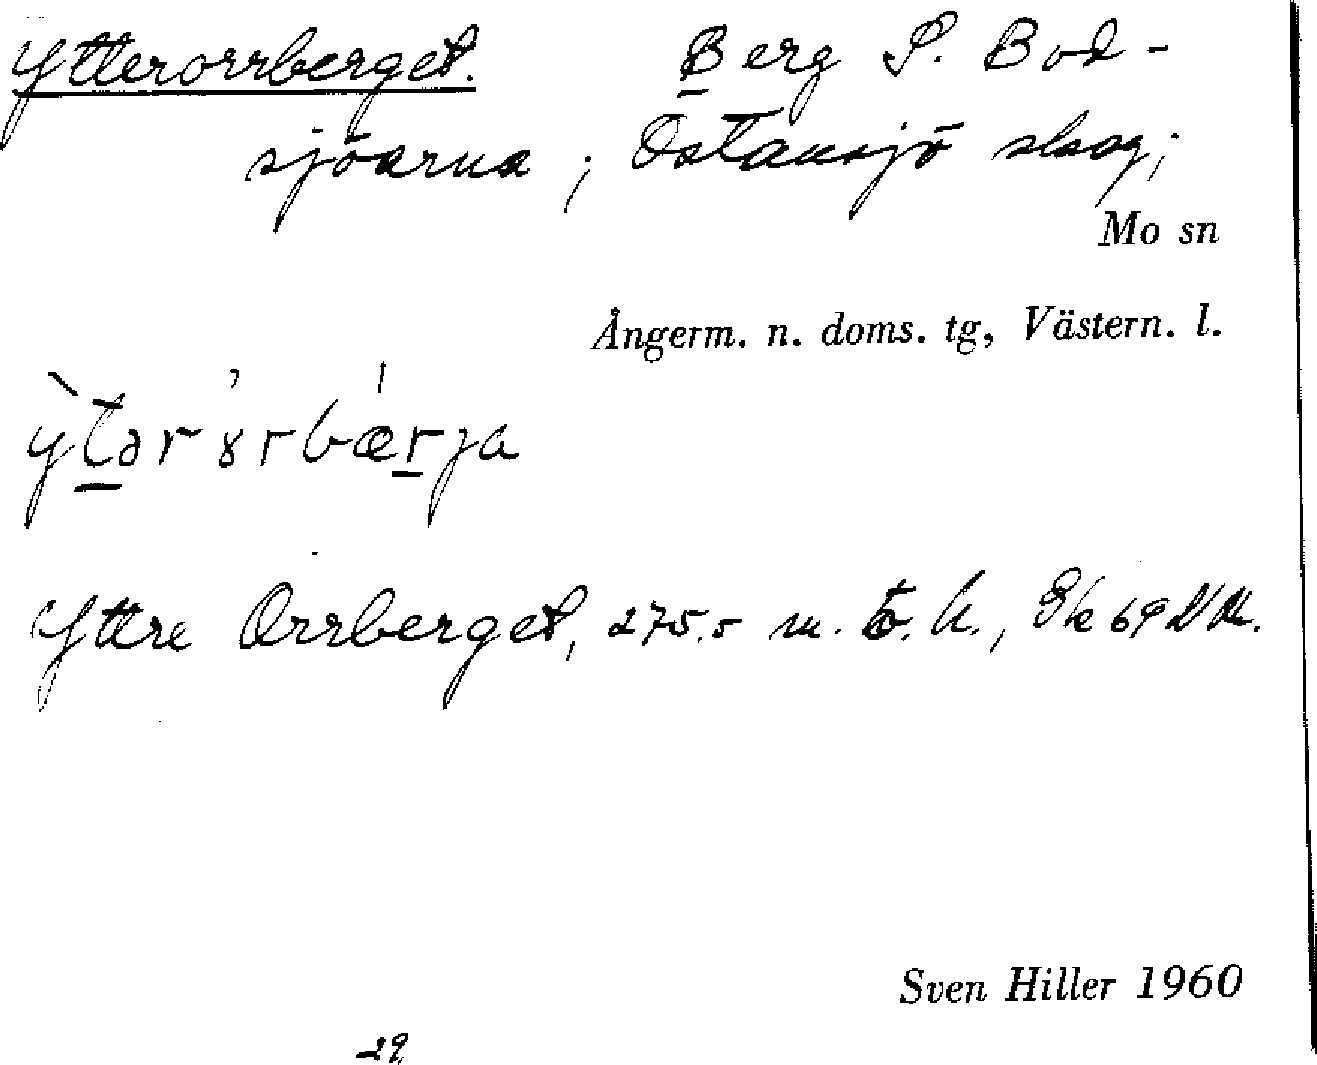 Ytterorrberget. Berg S. Bod-
sjöarna; Östansjö skog;
Mo sn
Ångerm. n. doms. tg, Västern. l.
ỳtər ɤrbǽrja
Yttre Orrberget, 275.5 m. ö. h., Gk 69 NV.
Sven Hiller 1960
29